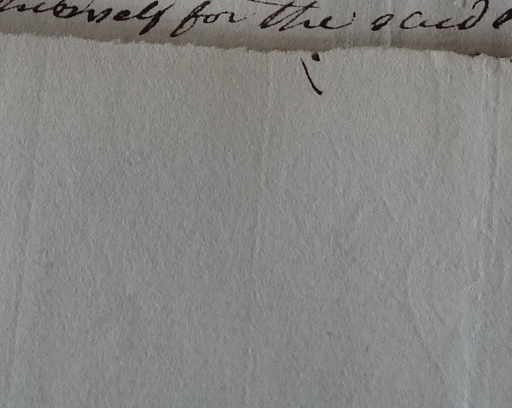 himself for the said